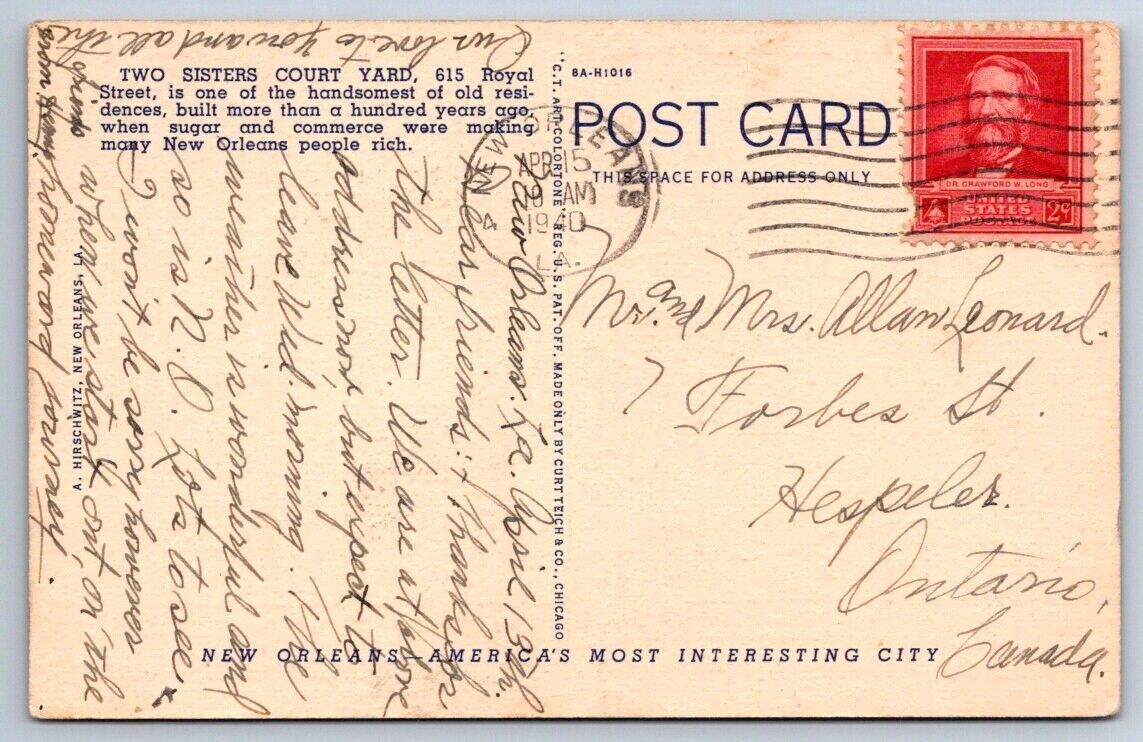 TWO SISTERS COURT YARD, 615 Royal
Street, is one of the handsomest of old resi-
dences, built more than a hundred years ago,
when sugar and commerce were making
many New Orleans people rich.
A. HIRSCHWITZ, NEW ORLEANS, LA.
"C.T. ART-COLORTONE" REG. U.S. PAT. OFF. MADE ONLY BY CURT TEICH & CO., CHICAGO
8A-H1016
POST CARD
THIS SPACE FOR ADDRESS ONLY
NEW ORLEANS
APR 15
1940
LA.
4
DR. CRAWFORD W. LONG
UNITED
STATES
POSTAGE
2¢
New Orleans. La. April 13th.
Dear friends: + Thanks for
the letter. We are at above
address now, but expect to
leave Wed. morning. The
weather is wonderful and
so is N. O. Lots to see.
I won't be sorry however
when we start on, or the
homeward journey.
Our love to you and all the
Mr. and Mrs. Allan Leonard.
7 Forbes St.
Hespeler.
Ontario,
Canada.
NEW ORLEANS—AMERICA'S MOST INTERESTING CITY